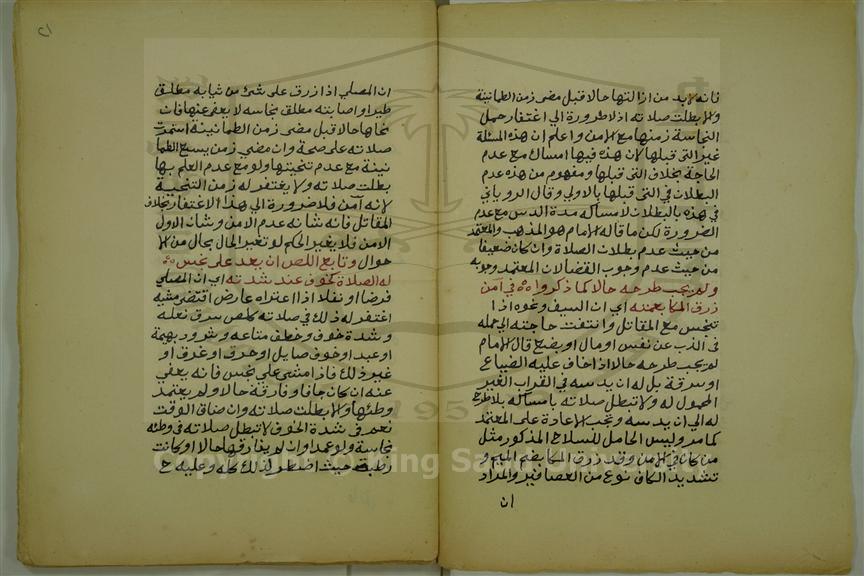 فانه لابد من ازالتها حالا قبل مضى زمن الطمانينة
والا بطلت صلاته اذ لا ضرورة الى اغتفار حمل
النجاسة زمنها مع الامن واعلم ان هذه المسئلة
غير التى قبلها لان هذه فيها امساك مع عدم
الحاجة بخلاف التى قبلها ومفهوم من هذه عدم
البطلان في التى قبلها بالاولى وقال الروياني
في هذه بالبطلان لامساكه مدة الدس مع عدم
الضرورة لكن ما قاله الامام هو المذهب والمعتمد
من حيث عدم بطلان الصلاة وان كان ضعيفا
من حيث عدم وجوب القضا لان المعتمد وجوبه
ولم يجب طرحه حالا كما ذكروا في آمن
ذرق المكا بعمته اي ان السيف ونحوه اذا
تنجس مع المقاتل وانتفت حاجته الى حمله
في الذب عن نفس او مال او بضع قال الامام
لم يجب طرحه حالا اذا خاف عليه الضياع
او سرقة بل له ان يدسه في القراب الغير
المحمول له ولا تبطل صلاته بامساكه بلا طرح
له الى ان يدسه وتجب الاعادة على المعتمد
كما مر وليس الحامل للسلاح المذكور مثل
من كان في الامن وقد ذرق المكا بضم الميم و
تشديد الكاف نوع من العصافير والمراد
ان
٢١
ان المصلي اذا زرق على شئ من ثيابه مطلق
طير او اصابته مطلق نجاسة لا يعفى عنها فان
نحاها حالا قبل مضى زمن الطمانينة استمرت
صلاته على صحة وان مضى زمن يسع الطما
نينة مع عدم تنحيتها ولو مع عدم العلم بها
بطلت صلاته ولا يغتفر له زمن التنحية
لانه آمن فلا ضرورة الى هذا الاغتفار بخلاف
المقاتل فانه شانه عدم الامن وشان الاول
الامن فلا يغير الحكم لو تغير الحال بحال من الا
حوال وتابع اللص ان يعد على نجس
له الصلاة كخوف عند شدته اي ان المصلي
فرضا او نفلا اذا اعتراه عارض اقتضى مشيه
اغتفر له ذلك في صلاته كلص سرق نعله
وشدة خوف وخطف متاعه وشرود بهيمة
او عبد او خوف صايل او حرق او غرق او
غير ذلك فاذا مشى على نجس فانه يعفى
عنه ان كان جافا وفارقه حالا ولم يعتمد
وطئها والا بطلت صلاته وان ضاق الوقت
نعم في شدة الخوف لا تبطل صلاته في وطئه
نجاسة ولو عمدا وان لم يفارقها حالا او كانت
رطبة حيث اضطر لذلك كله وعليه ح
Copyright © King Saud University
195